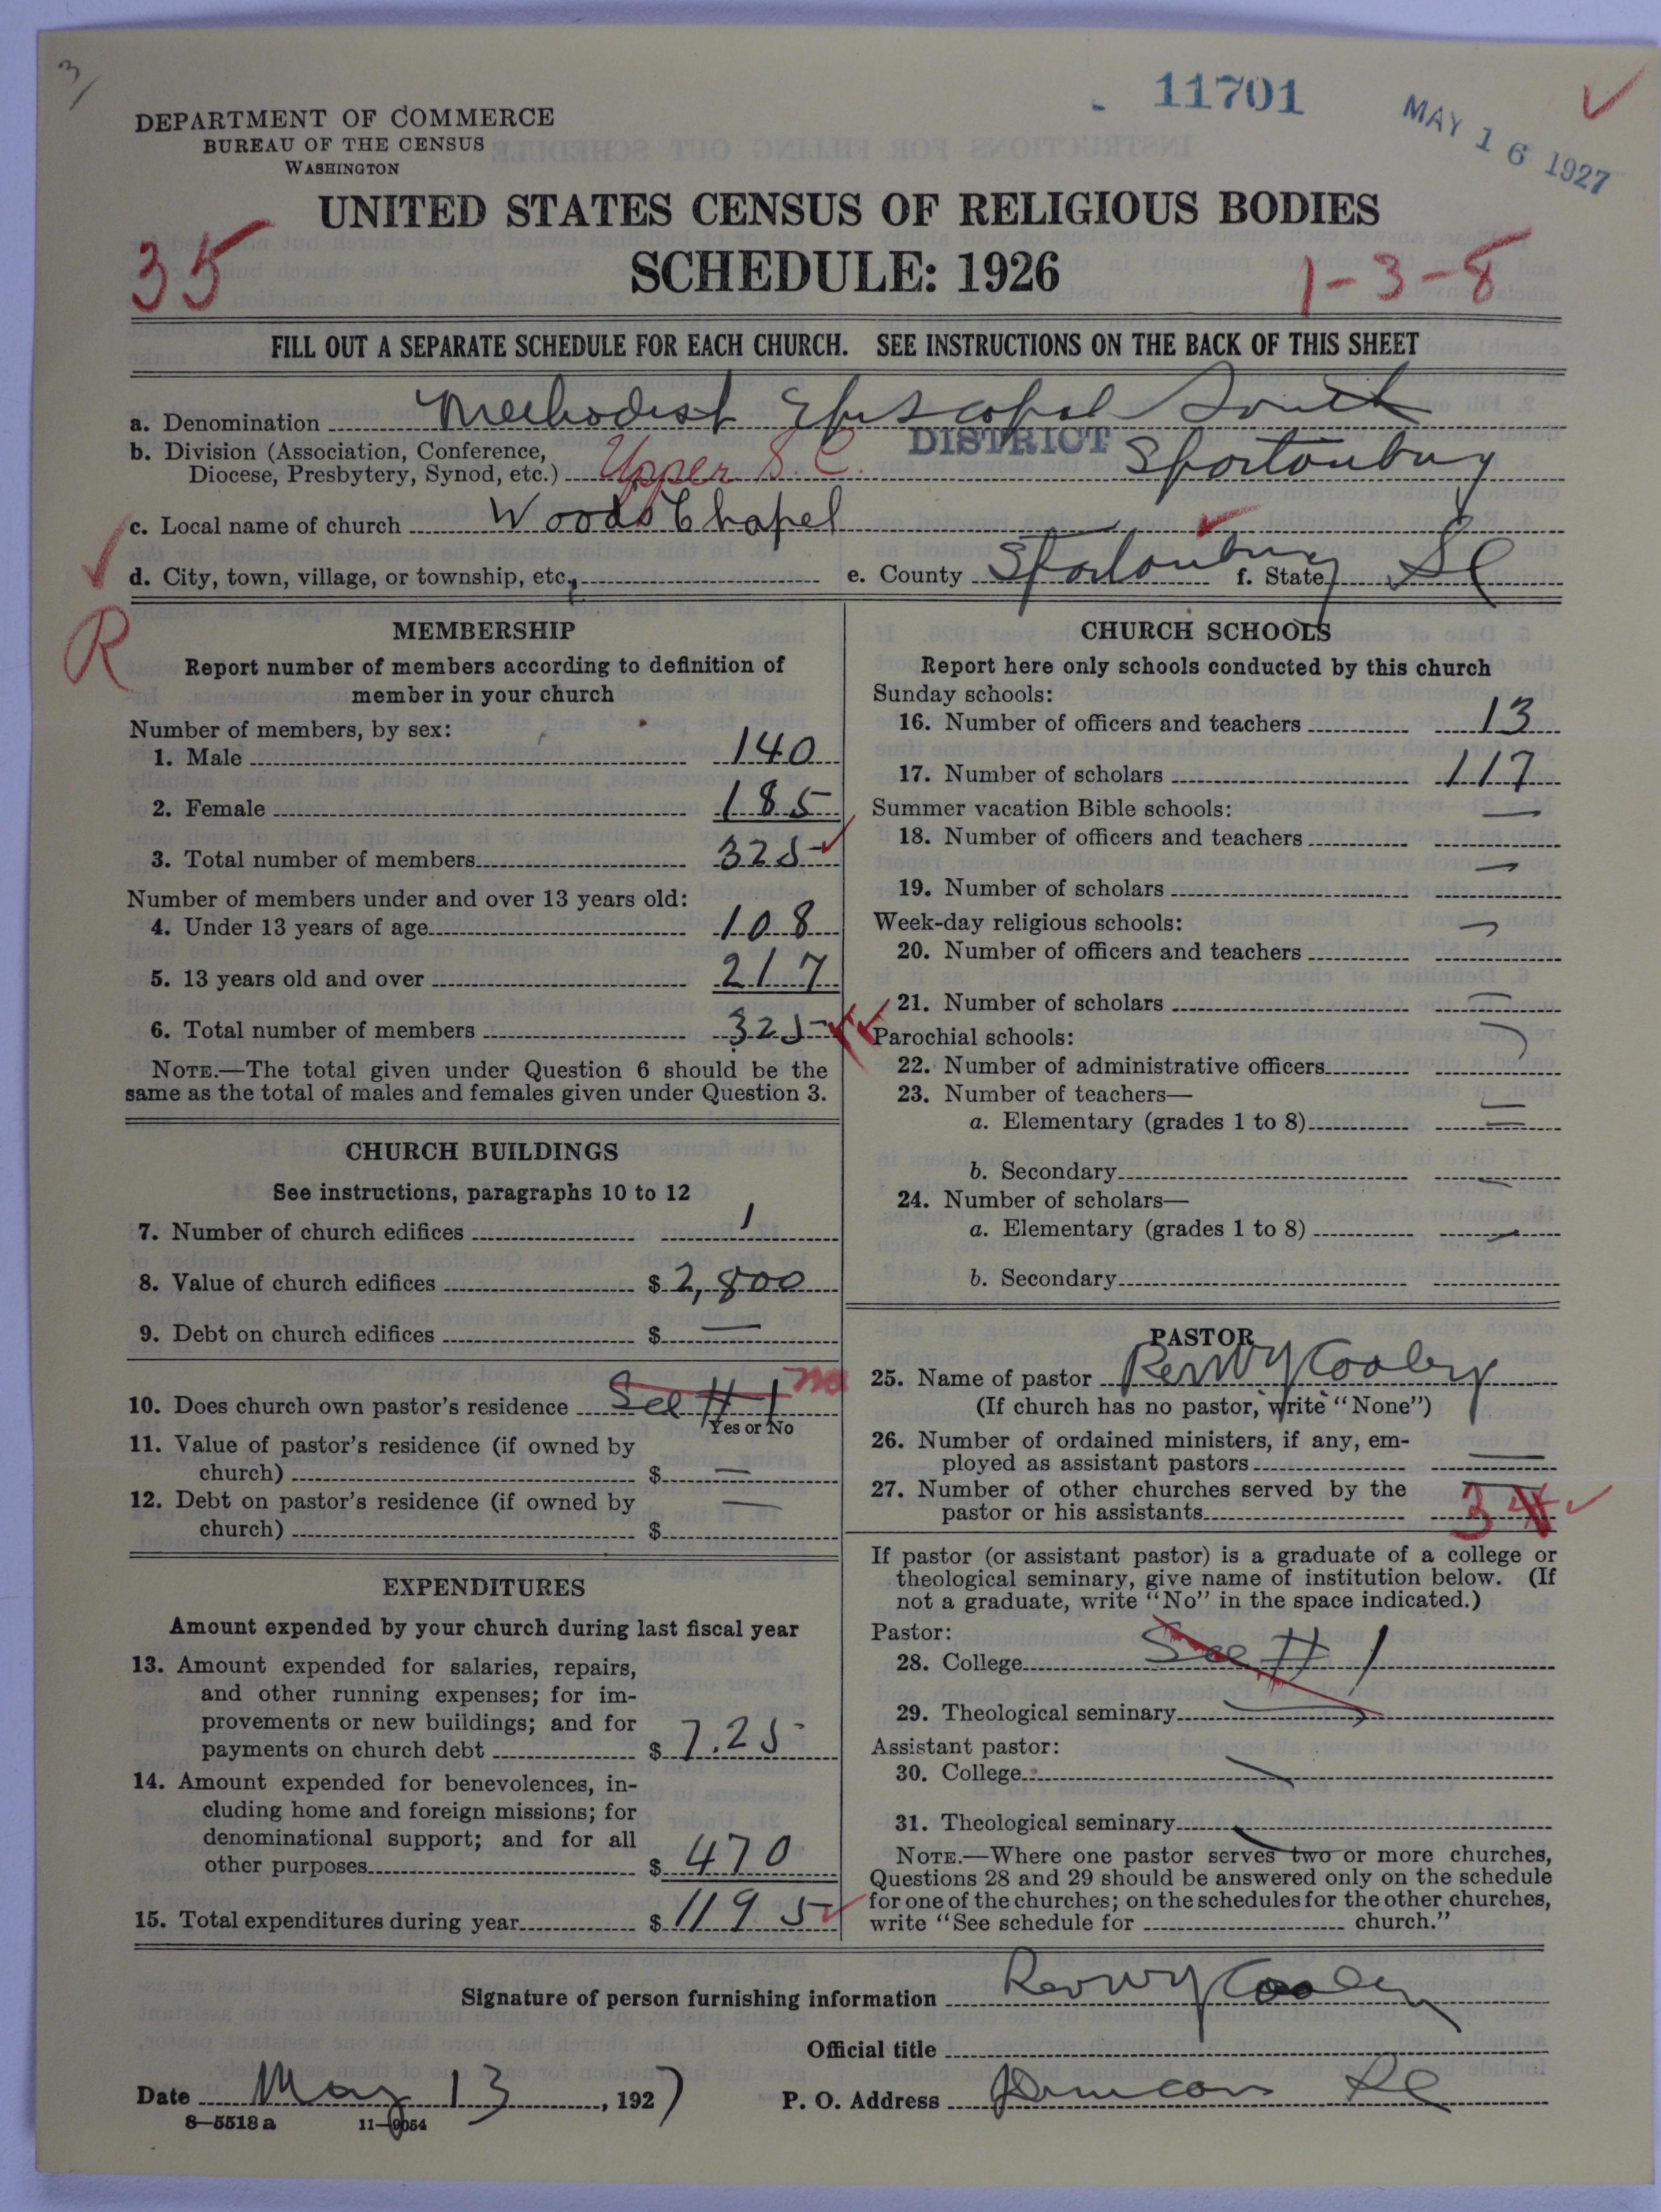 3
11701
MAY 16 1927
DEPARTMENT OF COMMERCE
BUREAU OF THE CENSUS
WASHINGTON
UNITED STATES CENSUS OF RELIGIOUS BODIES
SCHEDULE: 1926
35
1-3-8
FILL OUT A SEPARATE SCHEDULE FOR EACH CHURCH. SEE INSTRUCTIONS ON THE BACK OF THIS SHEET
a. Denomination Methodist Episcopal South
b. Division (Association, Conference,
Diocese, Presbytery, Synod, etc.) Upper S.C. DISTRICT Spartanburg
c. Local name of church Woods Chapel
d. City, town, village, or township, etc. e. County Spartanburg f. State SC
R
MEMBERSHIP
Report number of members according to definition of
member in your church
Number of members, by sex:
1. Male 140
2. Female 185
3. Total number of members 325
Number of members under and over 13 years old:
4. Under 13 years of age 108
5. 13 years old and over 217
6. Total number of members 325
NOTE.—The total given under Question 6 should be the
same as the total of males and females given under Question 3.
CHURCH BUILDINGS
See instructions, paragraphs 10 to 12
7. Number of church edifices 1
8. Value of church edifices $ 2,800
9. Debt on church edifices $ —
10. Does church own pastor's residence See # 1 no
Yes or No
11. Value of pastor's residence (if owned by
church) $ —
12. Debt on pastor's residence (if owned by
church) $ —
EXPENDITURES
Amount expended by your church during last fiscal year
13. Amount expended for salaries, repairs,
and other running expenses; for im-
provements or new buildings; and for
payments on church debt $ 7.25
14. Amount expended for benevolences, in-
cluding home and foreign missions; for
denominational support; and for all
other purposes $ 470
15. Total expenditures during year $ 1195
CHURCH SCHOOLS
Report here only schools conducted by this church
Sunday schools:
16. Number of officers and teachers 13
17. Number of scholars 117
Summer vacation Bible schools:
18. Number of officers and teachers —
19. Number of scholars —
Week-day religious schools:
20. Number of officers and teachers —
21. Number of scholars —
Parochial schools:
22. Number of administrative officers
23. Number of teachers—
a. Elementary (grades 1 to 8) —
b. Secondary —
24. Number of scholars—
a. Elementary (grades 1 to 8) —
b. Secondary
PASTOR
25. Name of pastor Rev W Y Cooley
(If church has no pastor, write "None")
26. Number of ordained ministers, if any, em-
ployed as assistant pastors —
27. Number of other churches served by the
pastor or his assistants 3 4
If pastor (or assistant pastor) is a graduate of a college or
theological seminary, give name of institution below. (If
not a graduate, write "No" in the space indicated.)
Pastor:
28. College See # 1
29. Theological seminary
Assistant pastor:
30. College
31. Theological seminary
NOTE.—Where one pastor serves two or more churches,
Questions 28 and 29 should be answered only on the schedule
for one of the churches; on the schedules for the other churches,
write "See schedule for church."
Signature of person furnishing information Rev W Y Cooley
Official title
Date May 13, 1927 P. O. Address Duncan SC
8—5518 a 11—9054